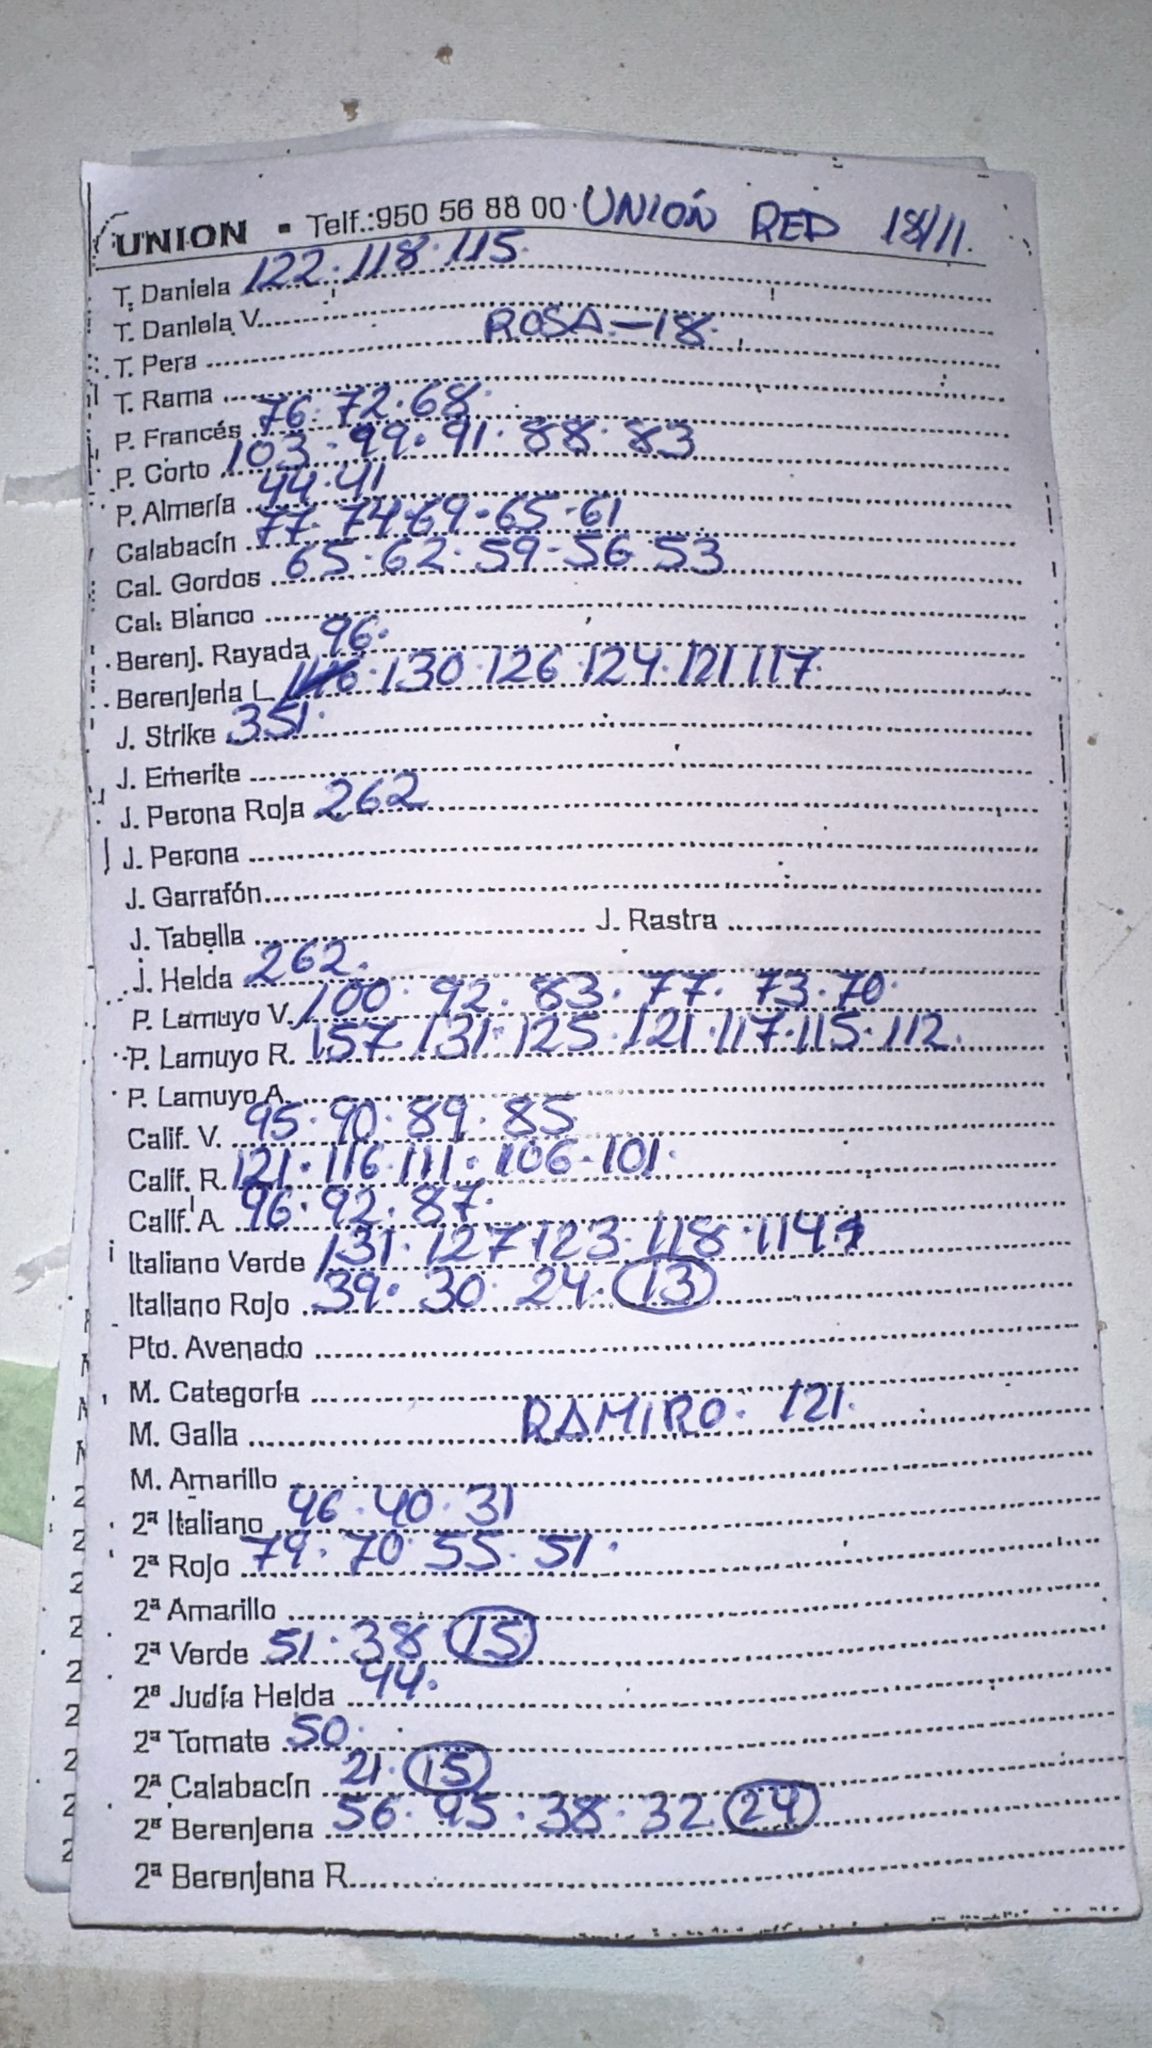 UNION ▪ Telf.:950 56 88 00 UNIÓN RED 18/11.
T. Daniela 122·118·115·
T. Daniela V.
T. Pera ROSA-18·
T. Rama
P. Francés 76·72·68·
P. Corto 103·99·91·88·83
P. Almería 44·41
Calabacín 77·74·69·65·61
Cal. Gordos 65·62·59·56·53
Cal. Blanco
Berenj. Rayada 96·
Berenjena L. 130·126·124·121 117·
J. Strike 351·
J. Emerite
J. Perona Roja 262
J. Perona
J. Garrafón
J. Tabella J. Rastra
J. Helda 262·
P. Lamuyo V. 100·92·83·77·73·70·
P. Lamuyo R. 157·131·125·121·117·115·112·
P. Lamuyo A.
Calif. V. 95·90·89·85
Calif. R. 121·116·111·106·101·
Calif. A. 96·92·87·
Italiano Verde 131·127·123·118·114
Italiano Rojo 39·30·24·13
Pto. Avenado
M. Categoría
M. Galla RAMIRO· 121·
M. Amarillo
2ª Italiano 46·40·31
2ª Rojo 79·70·55·51·
2ª Amarillo
2ª Verde 51·38 15
2ª Judía Helda 44·
2ª Tomate 50·
2ª Calabacín 21·15
2ª Berenjena 56·45·38·32 24
2ª Berenjena R.